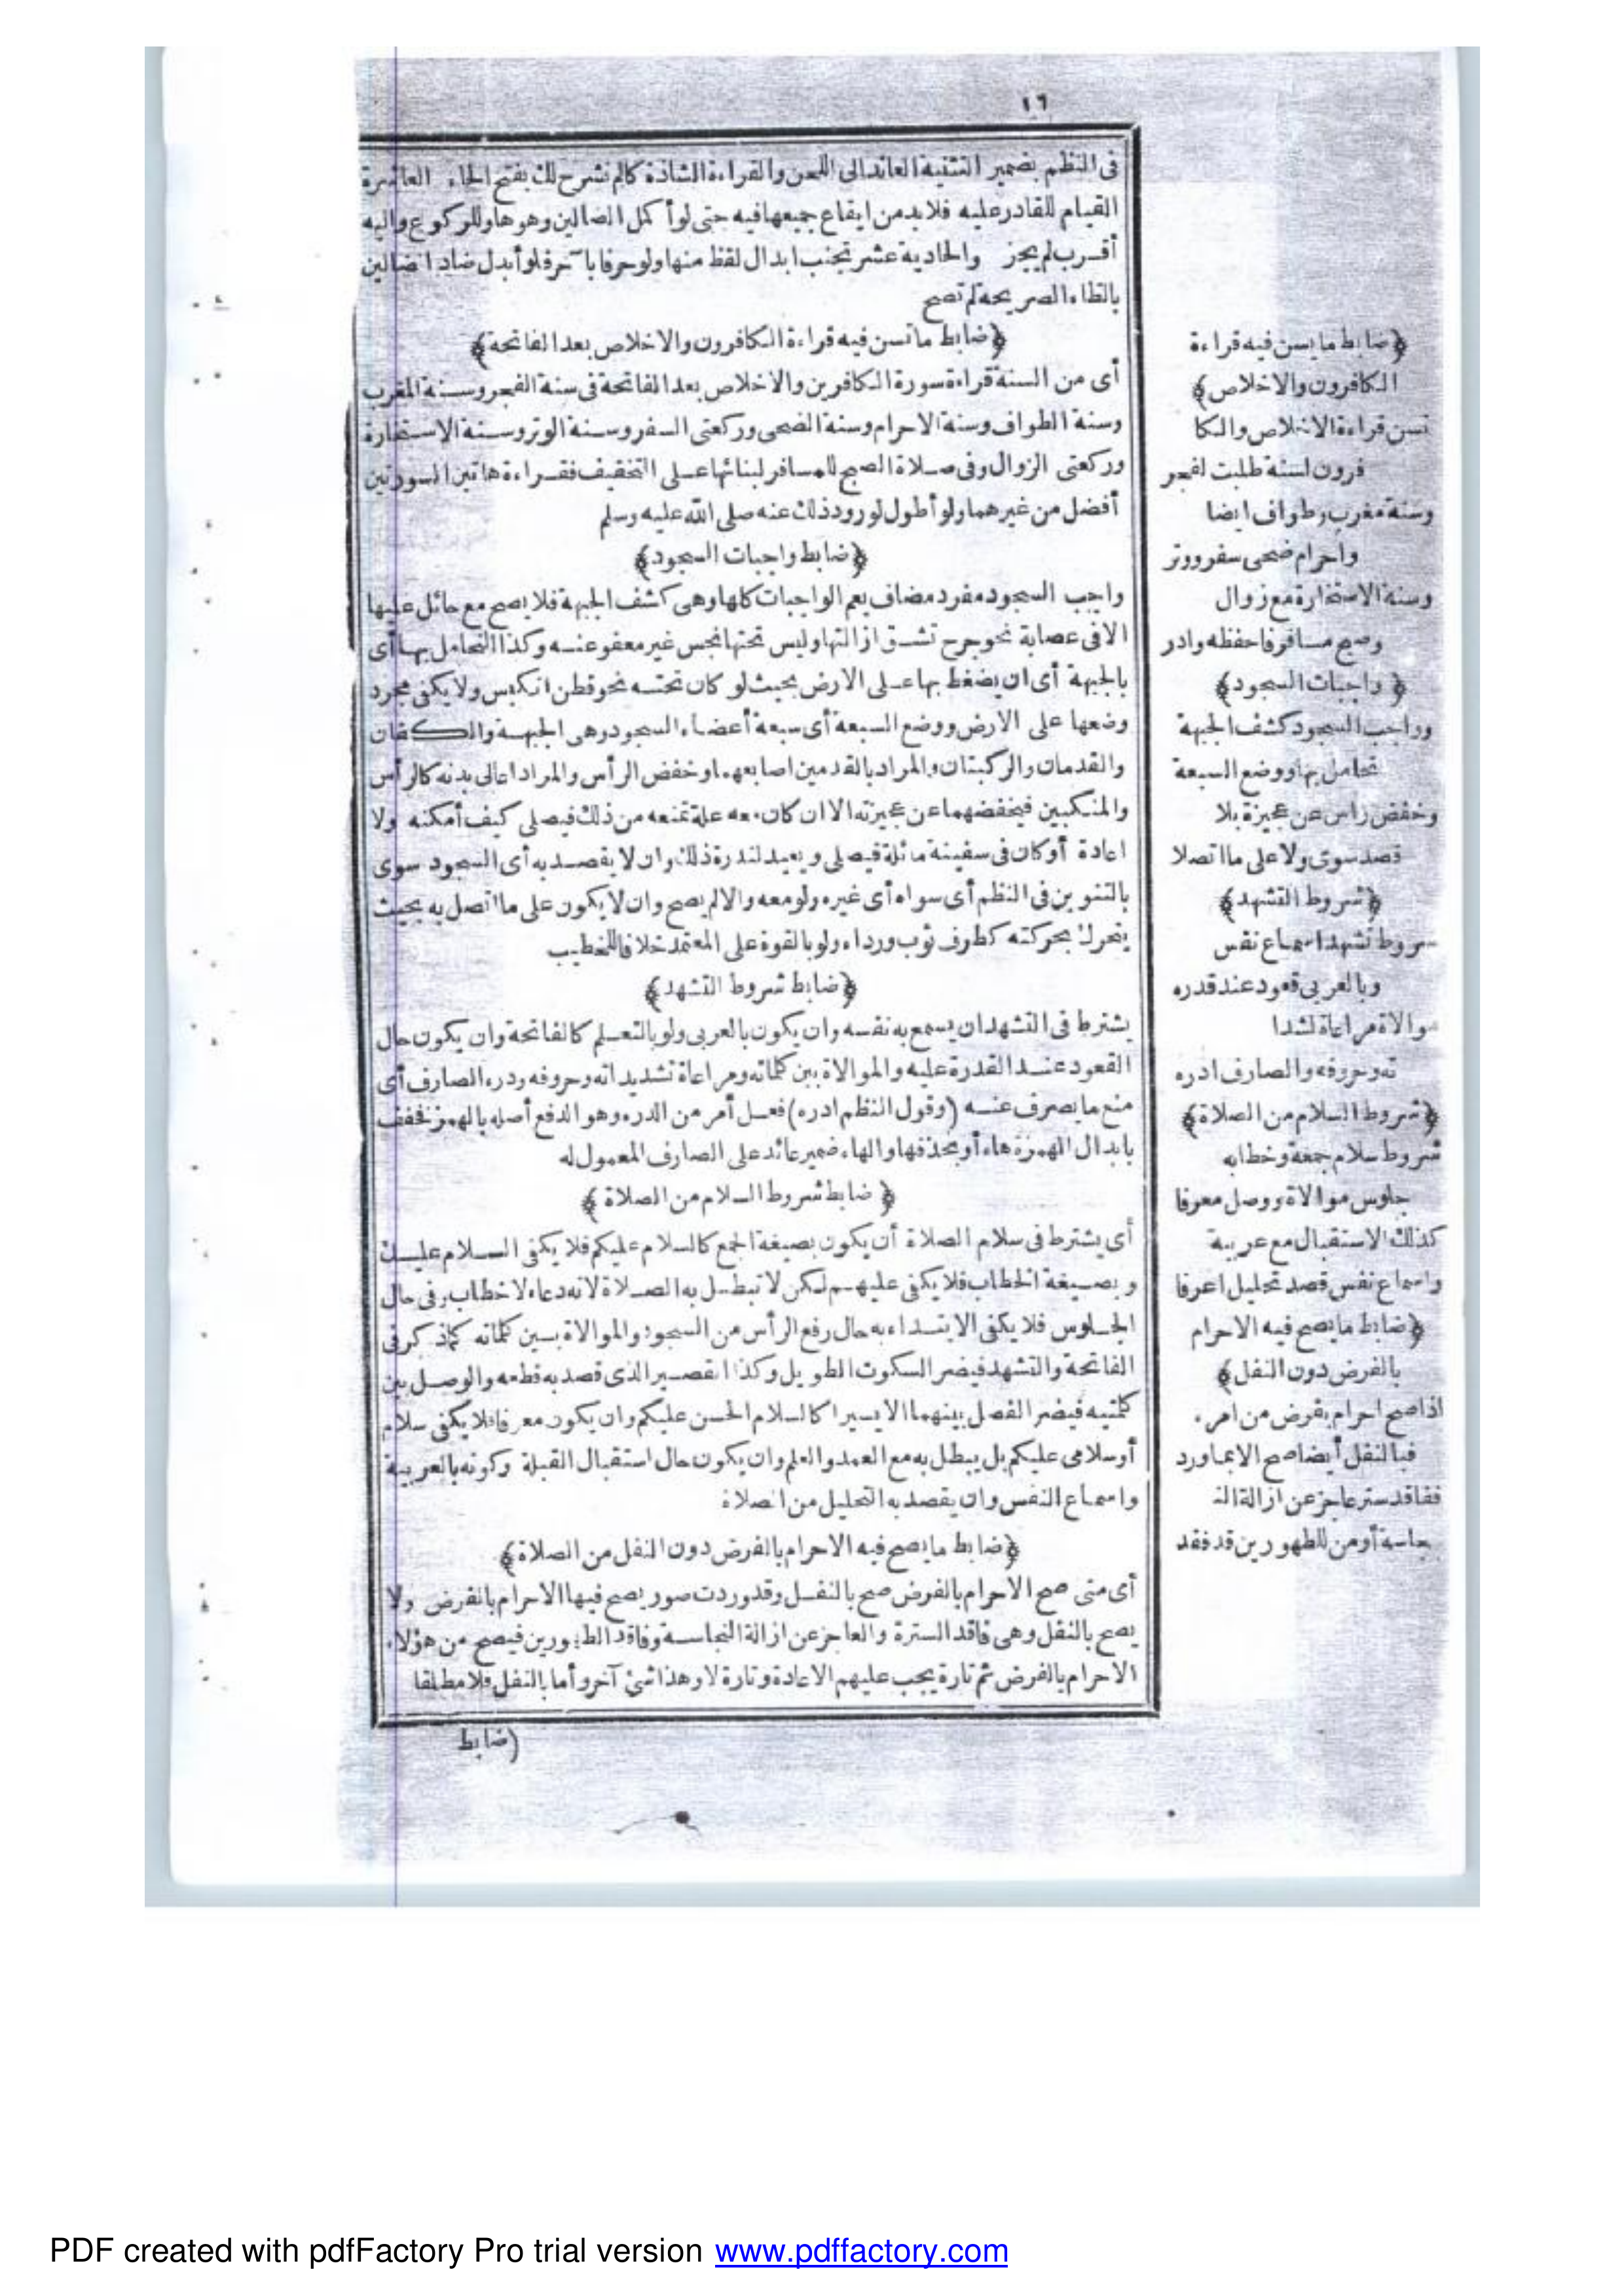 ١٦
فى النظم بضمير التثنية العائد الى اللحن والقراءة الشاذة كالم نشرح لك بفتح الحاء العاشرة
القيام للقادر عليه فلا بد من ايقاع جميعها فيه حتى لو أكمل الضالين وهو هاو للركوع واليه
أقرب لم يجز والحادية عشر تجنب ابدال لفظ منها ولو حرفا بآخر فلو أبدل ضاد الضالين
بالظاء الصريحة لم تصح
﴿ضابط ما تسن فيه قراءة الكافرون والاخلاص بعد الفاتحة﴾
أى من السنة قراءة سورة الكافرين والاخلاص بعد الفاتحة فى سنة الفجر وسنة المغرب
وسنة الطواف وسنة الاحرام وسنة الضحى وركعتى السفر وسنة الوتر وسنة الاستخارة
وركعتى الزوال وفى صلاة الصبح للمسافر لبنائها على التخفيف فقراءة هاتين السورتين
أفضل من غيرهما ولو أطول لورود ذلك عنه صلى الله عليه وسلم
﴿ضابط واجبات السجود﴾
واجب السجود مفرد مضاف يعم الواجبات كلها وهى كشف الجبهة فلا يصح مع حائل عليها
الا فى عصابة نحو جرح تشق ازالتها وليس تحتها نجس غير معفو عنه وكذا التحامل بها أى
بالجبهة أى ان يضغط بها على الارض بحيث لو كان تحته نحو قطن انكبس ولا يكفى مجرد
وضعها على الارض ووضع السبعة أى سبعة أعضاء السجود وهى الجبهة والكفان
والقدمان والركبتان والمراد بالقدمين اصابعهما وخفض الرأس والمراد اعالى بدنه كالرأس
والمنكبين فيخفضهما عن عجيزته الا ان كان معه علة تمنعه من ذلك فيصلى كيف أمكنه ولا
اعادة أو كان فى سفينة مائلة فيصلى ويعيد لندرة ذلك وان لا يقصد به أى السجود سوى
بالتنوين فى النظم أى سواه أى غيره ولو معه والا لم يصح وان لا يكون على ما اتصل به بحيث
يتحرك بحركته كطرف ثوب ورداء ولو بالقوة على المعتمد خلافا للخطيب
﴿ضابط شروط التشهد﴾
يشترط فى التشهد ان يسمع به نفسه وان يكون بالعربى ولو بالتعلم كالفاتحة وان يكون حال
القعود عند القدرة عليه والموالاة بين كلماته ومراعاة تشديداته وحروفه ودرء الصارف أى
منع ما يصرف عنه (وقول النظم ادره) فعل أمر من الدرء وهو الدفع أصله بالهمز فخفف
بابدال الهمزة هاء أو بحذفها والهاء ضمير عائد على الصارف المعمول له
﴿ ضابط شروط السلام من الصلاة ﴾
أى يشترط فى سلام الصلاة أن يكون بصيغة الجمع كالسلام عليكم فلا يكفى السلام عليك
وبصيغة الخطاب فلا يكفى عليهم لكن لا تبطل به الصلاة لانه دعاء لا خطاب وفى حال
الجلوس فلا يكفى الابتداء به حال رفع الرأس من السجود والموالاة بين كلماته كما ذكر فى
الفاتحة والتشهد فيضر السكوت الطويل وكذا القصير الذى قصد به قطعه والوصل بين
كلمتيه فيضر الفصل بينهما الا يسيرا كالسلام الحسن عليكم وان يكون معرفا فلا يكفى سلام
أو سلامى عليكم بل يبطل به مع العمد والعلم وان يكون حال استقبال القبلة وكونه بالعربية
واسماع النفس وان يقصد به التحليل من الصلاة
﴿ضابط ما يصح فيه الاحرام بالفرض دون النفل من الصلاة﴾
أى متى صح الاحرام بالفرض صح بالنفل وقد وردت صور يصح فيها الاحرام بالفرض ولا
يصح بالنفل وهى فاقد السترة والعاجز عن ازالة النجاسة وفاقد الطهورين فيصح من هؤلاء
الاحرام بالفرض ثم تارة يجب عليهم الاعادة وتارة لا وهذا شئ آخر وأما بالنفل فلا مطلقا
(ضابط
﴿ضابط ما يسن فيه قراءة
الكافرون والاخلاص﴾
تسن قراءة الاخلاص والكا
فرون لسنة طلبت لفجر
وسنة مغرب وطواف ايضا
واحرام ضحى سفر ووتر
وسنة الاستخارة مع زوال
وصبح مسافر فاحفظه وادر
﴿ واجبات السجود﴾
وواجب السجود كشف الجبهة
تحامل بها ووضع السبعة
وخفض راس عن عجيزة بلا
قصد سوى ولا على ما اتصلا
﴿شروط التشهد﴾
شروط تشهد اسماع نفس
وبالعربى قعود عند قدره
موالاة مراعاة لشدا
ته وحروفه والصارف ادره
﴿شروط السلام من الصلاة﴾
شروط سلام جمعه وخطابه
جلوس موالاة ووصل معرفا
كذلك الاستقبال مع عربية
واسماع نفس قصد تحليل اعرفا
﴿ضابط ما يصح فيه الاحرام
بالفرض دون النفل﴾
اذا صح احرام بفرض من امرء
فبالنفل أيضا صح الا بما ورد
ففاقد ستر عاجز عن ازالة الن
جاسة أو من للطهورين قد فقد
PDF created with pdfFactory Pro trial version www.pdffactory.com